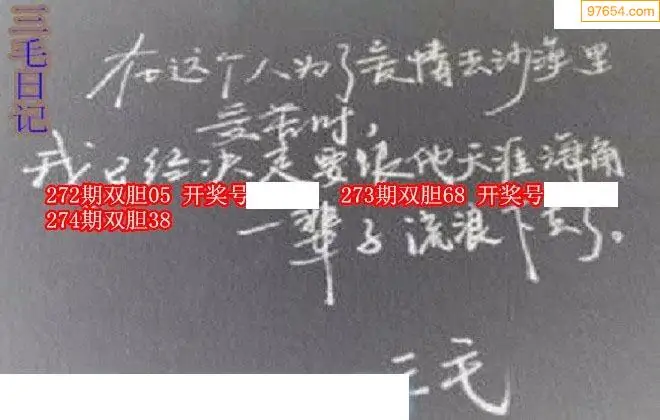 三毛日记
97654.com
在这个人为了爱情去沙漠里
受苦时，
我已经决定要跟他天涯海角
272期双胆05 开奖号
273期双胆68 开奖号
274期双胆38
一辈子流浪下去了。
三毛